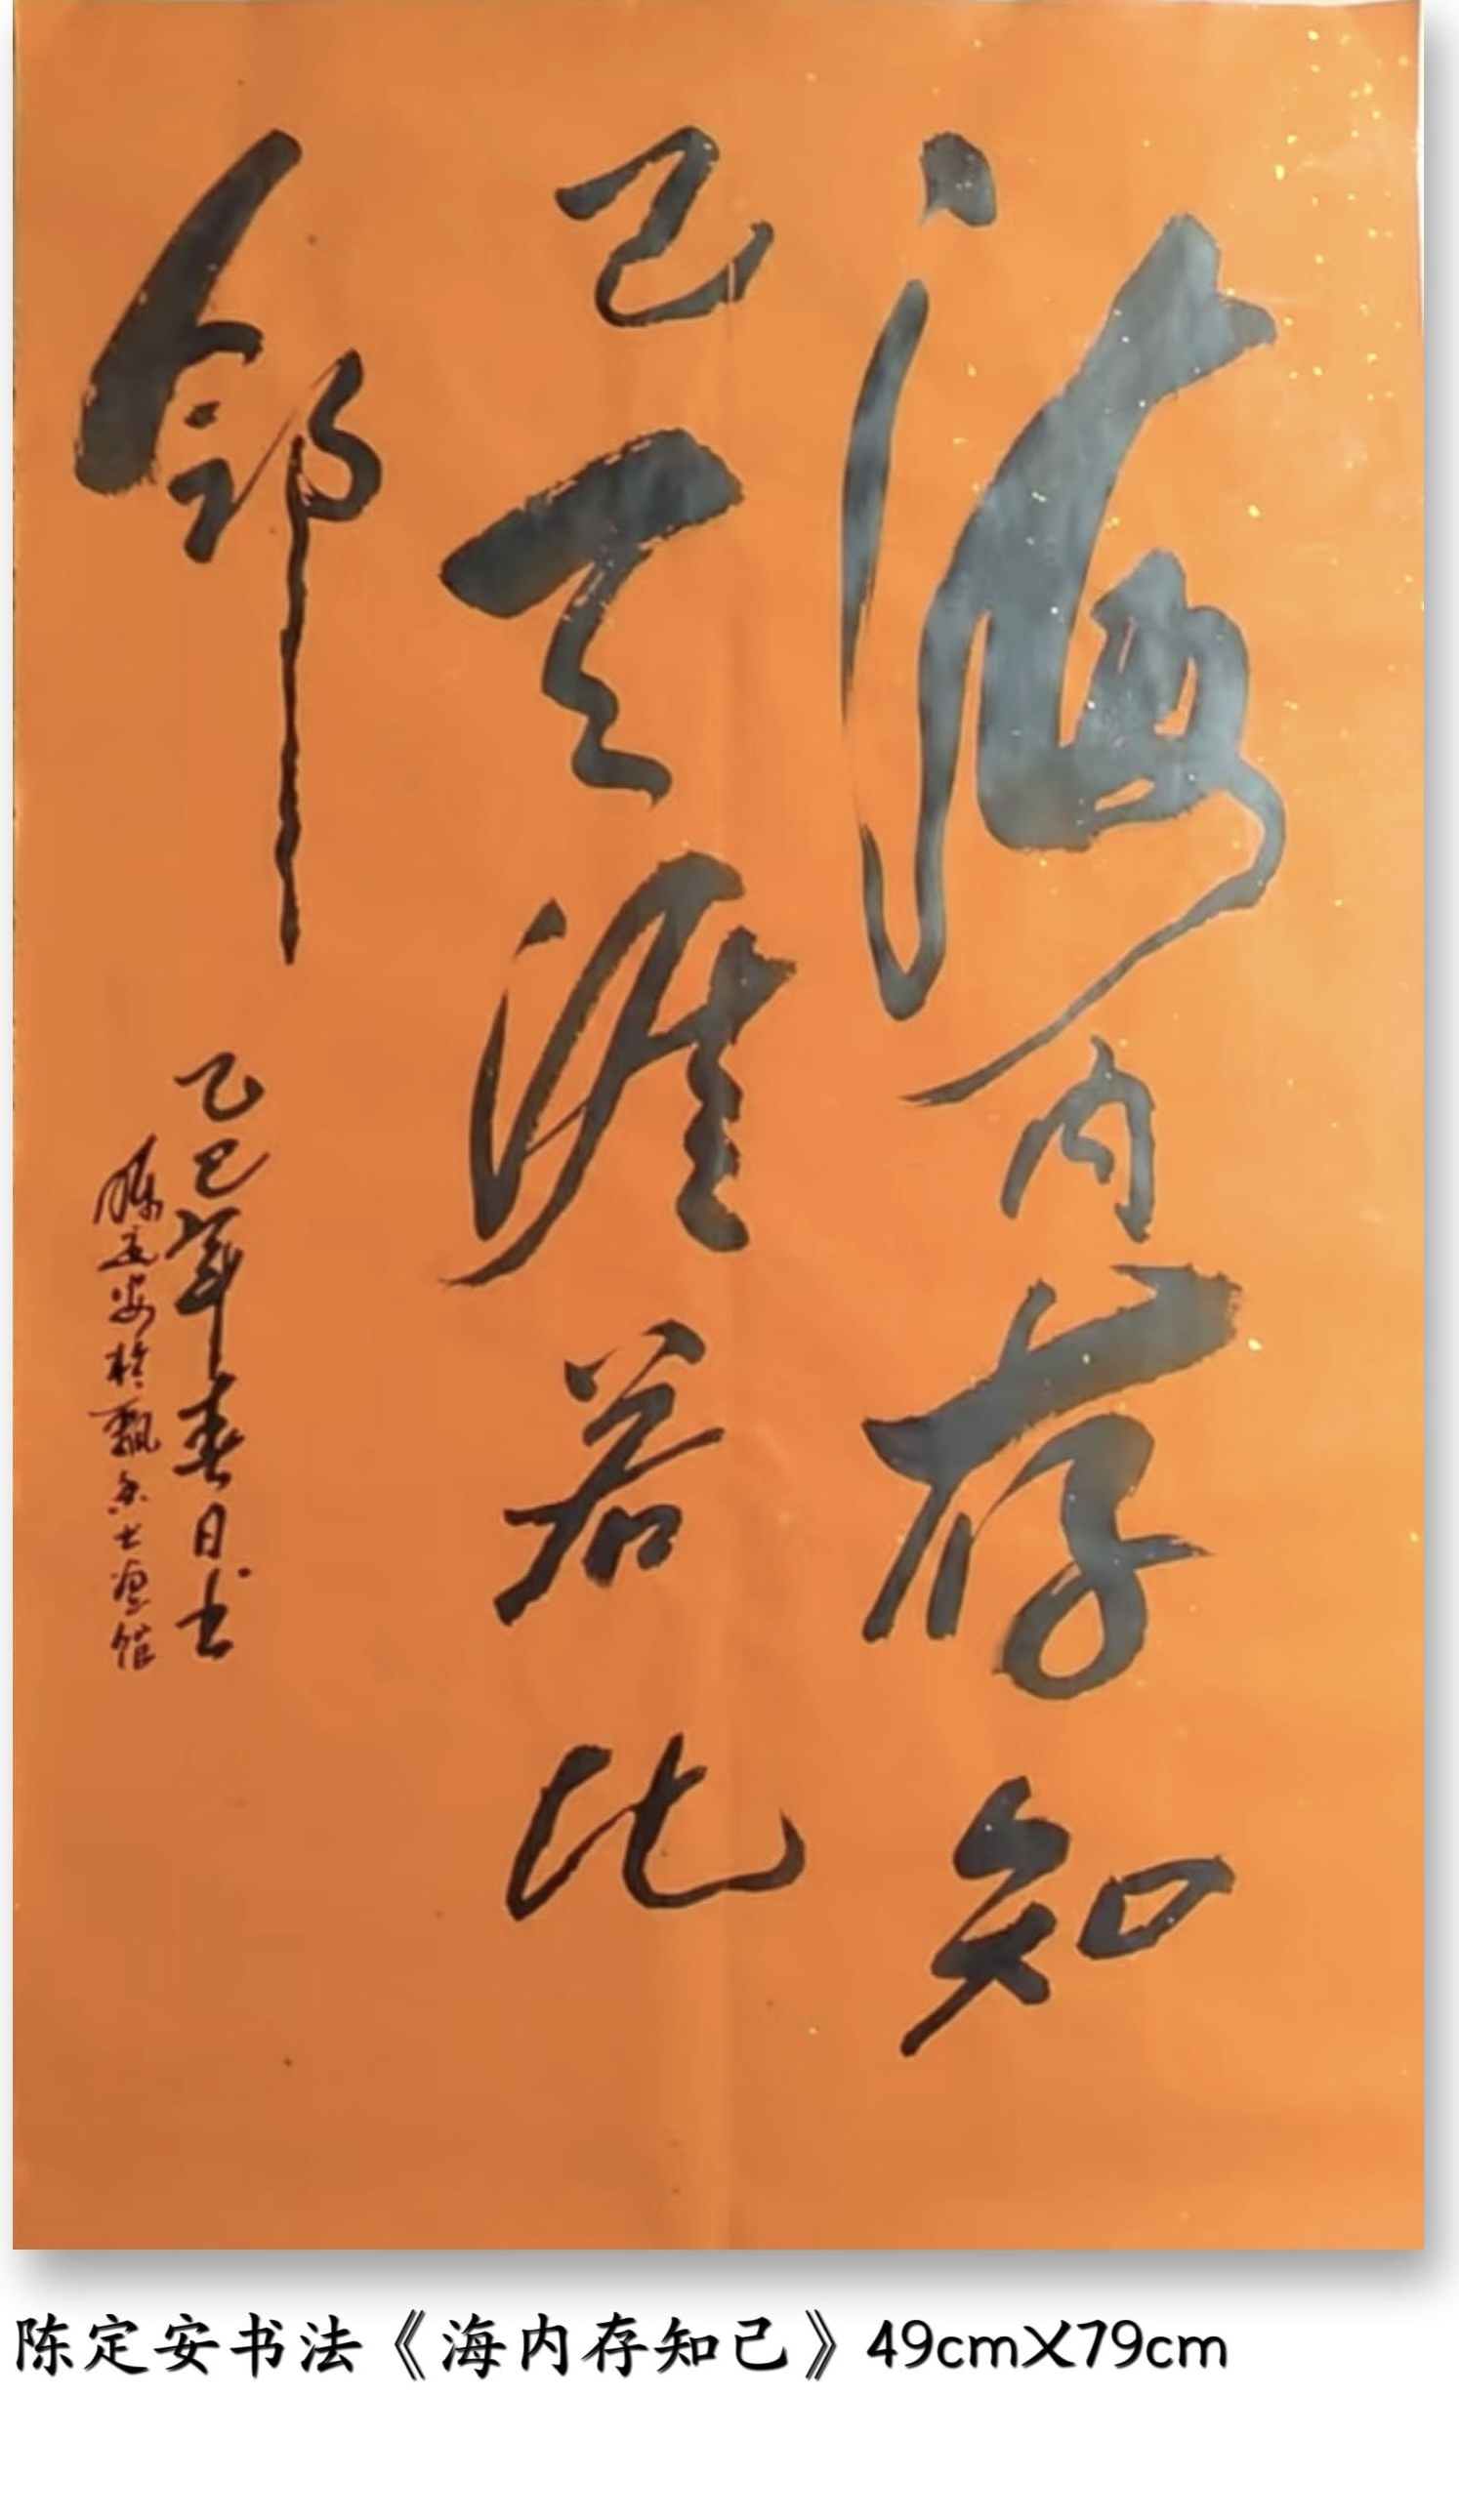 海内存知
己天涯若比
邻
乙巳年春日书
陈定安於飘香书画馆
陈定安书法《海内存知己》49cmX79cm